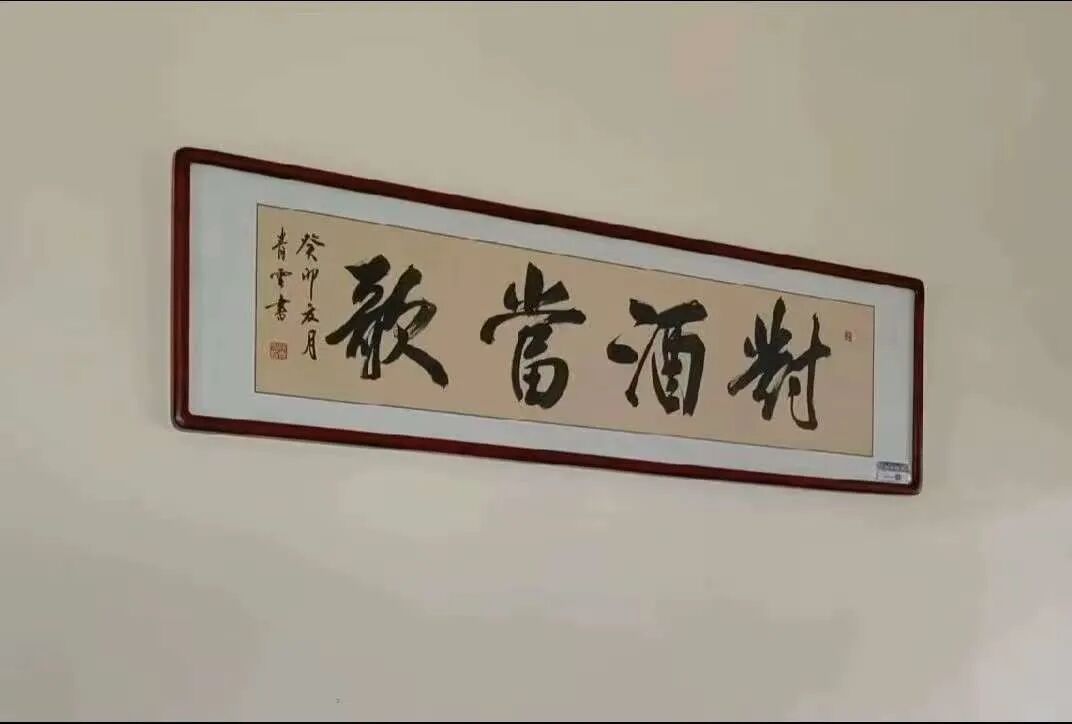 對酒當歌
癸卯友月
青雲書